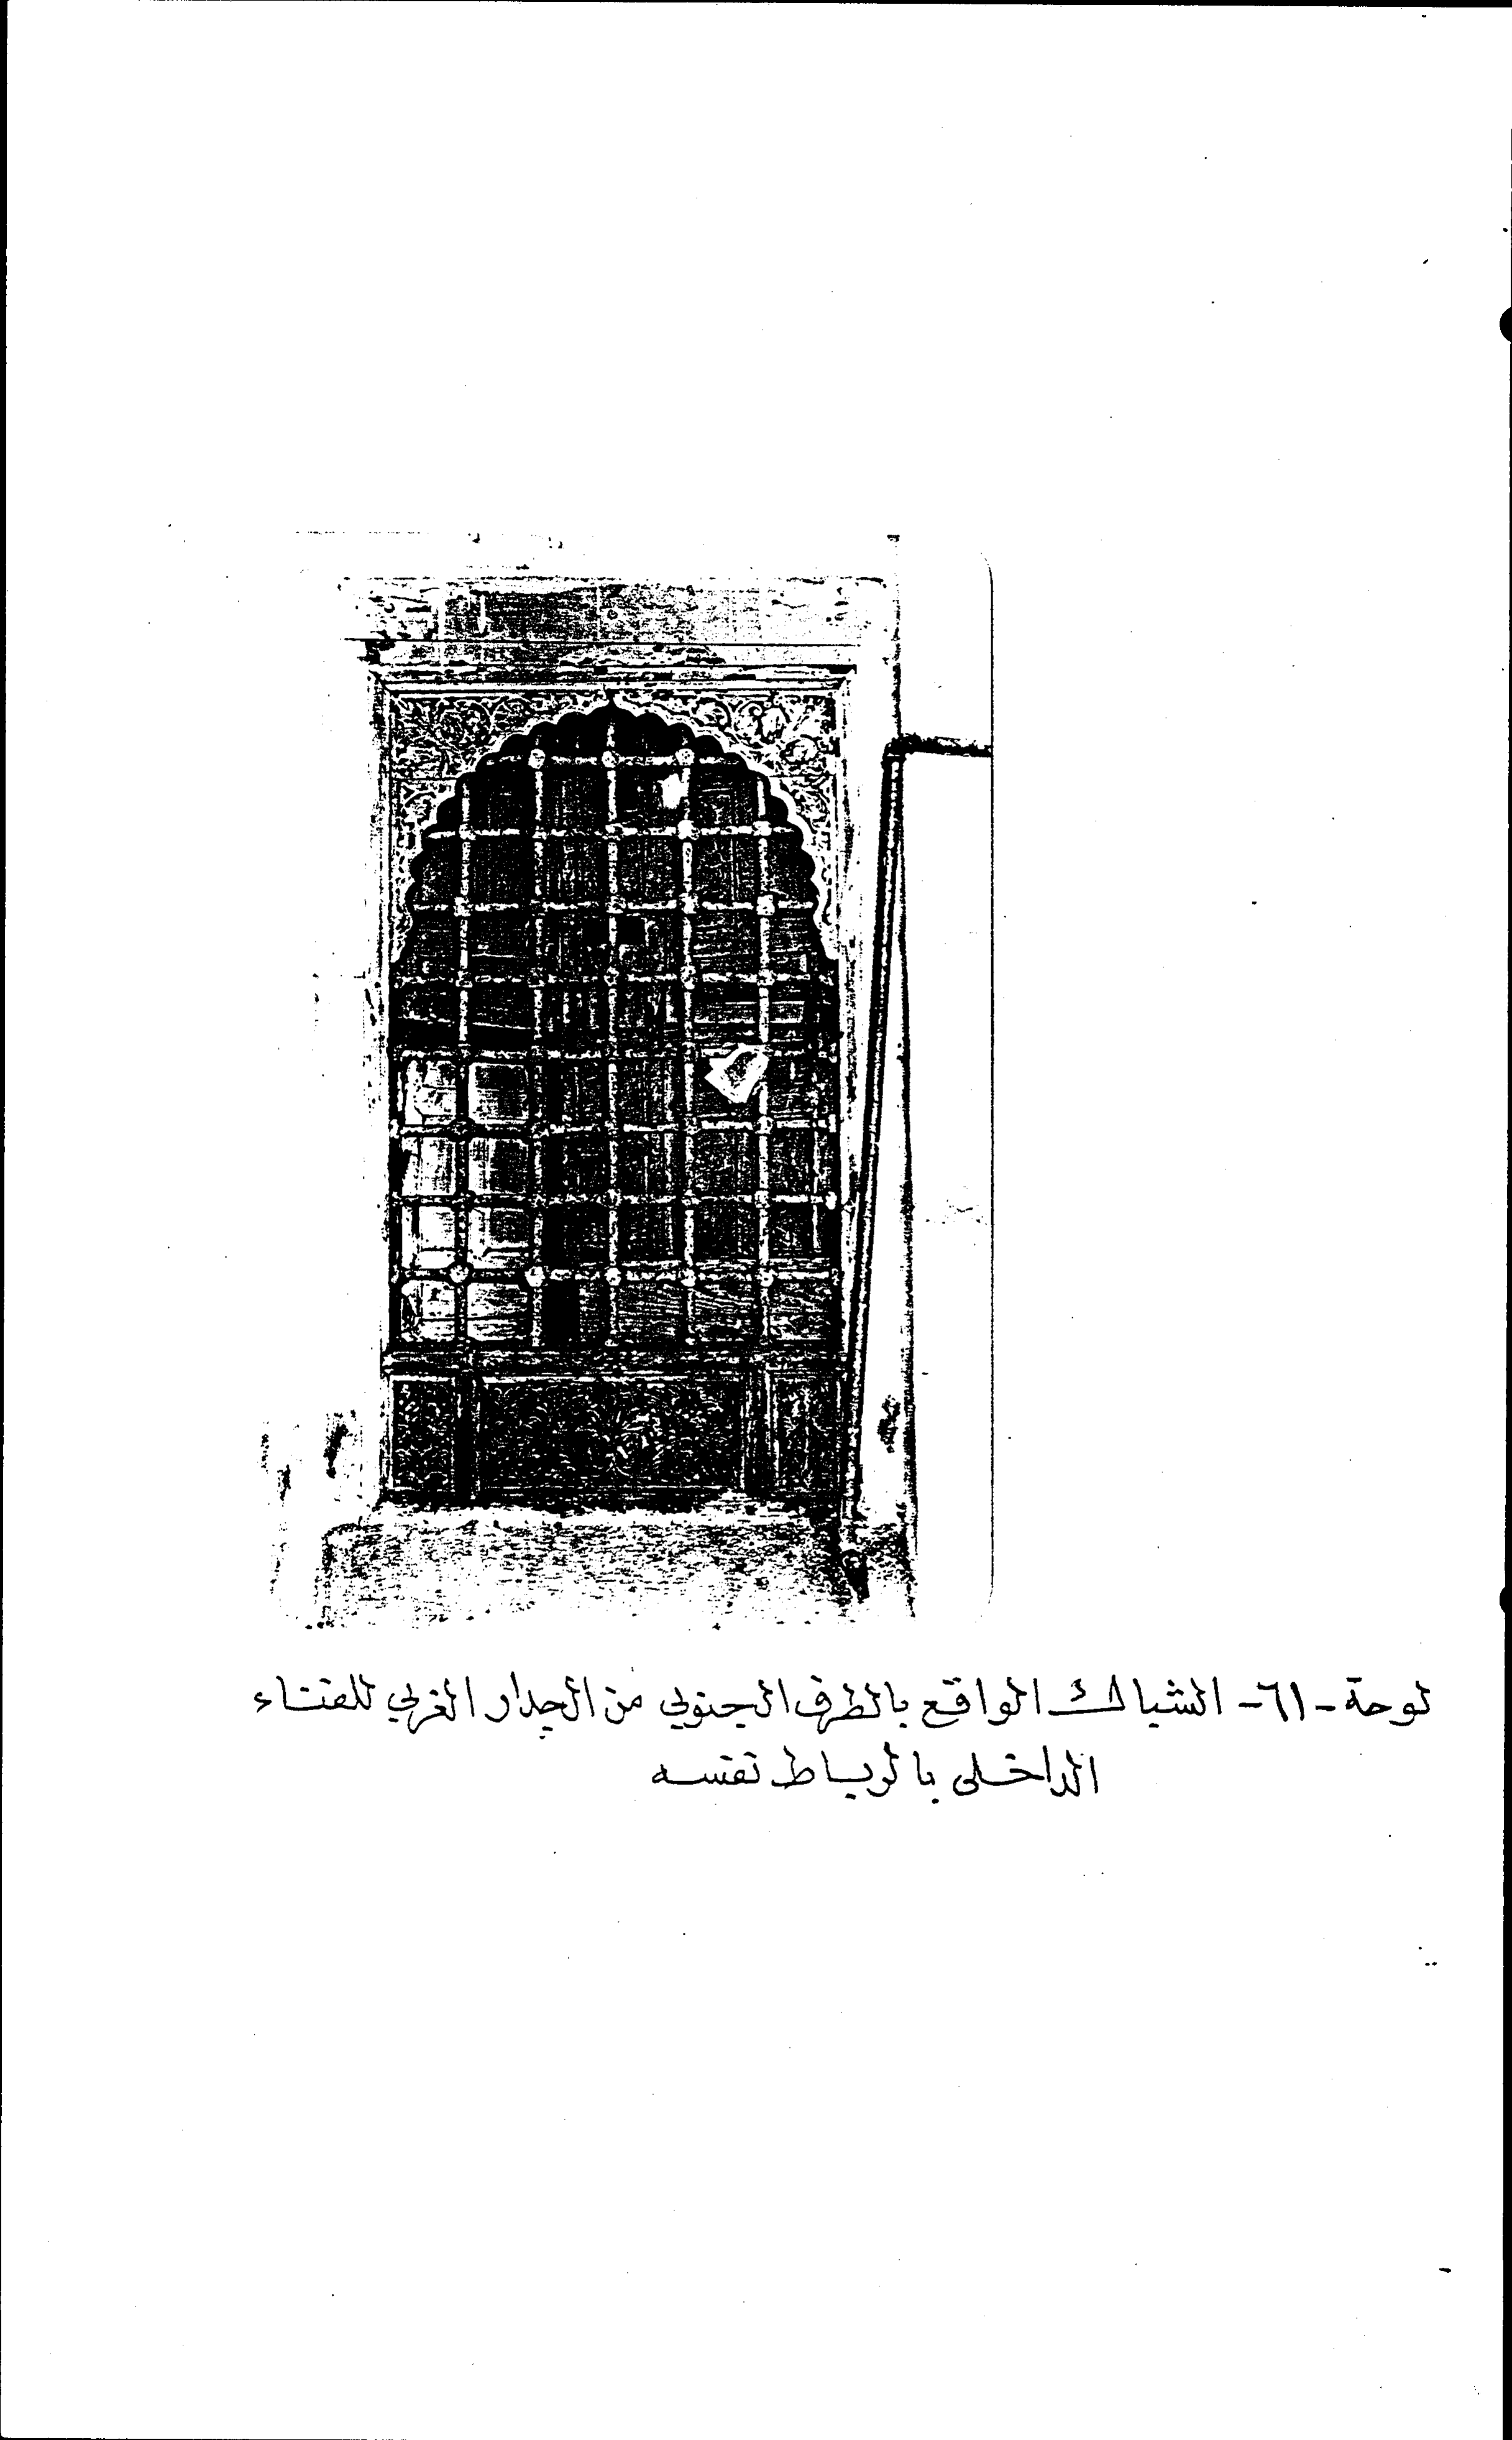 لوحة -٦١- الشباك الواقع بالطرف الجنوبي من الجدار الغربي للفناء
الداخلى بالرباط نفسه